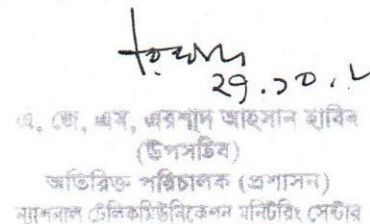 ২৭.১০.২
এ, জে, এম, এরশাদ আহসান হাবিব
(উপসচিব)
অতিরিক্ত পরিচালক (প্রশাসন)
ন্যাশনাল টেলিকমিউনিকেশন মনিটরিং সেন্টার